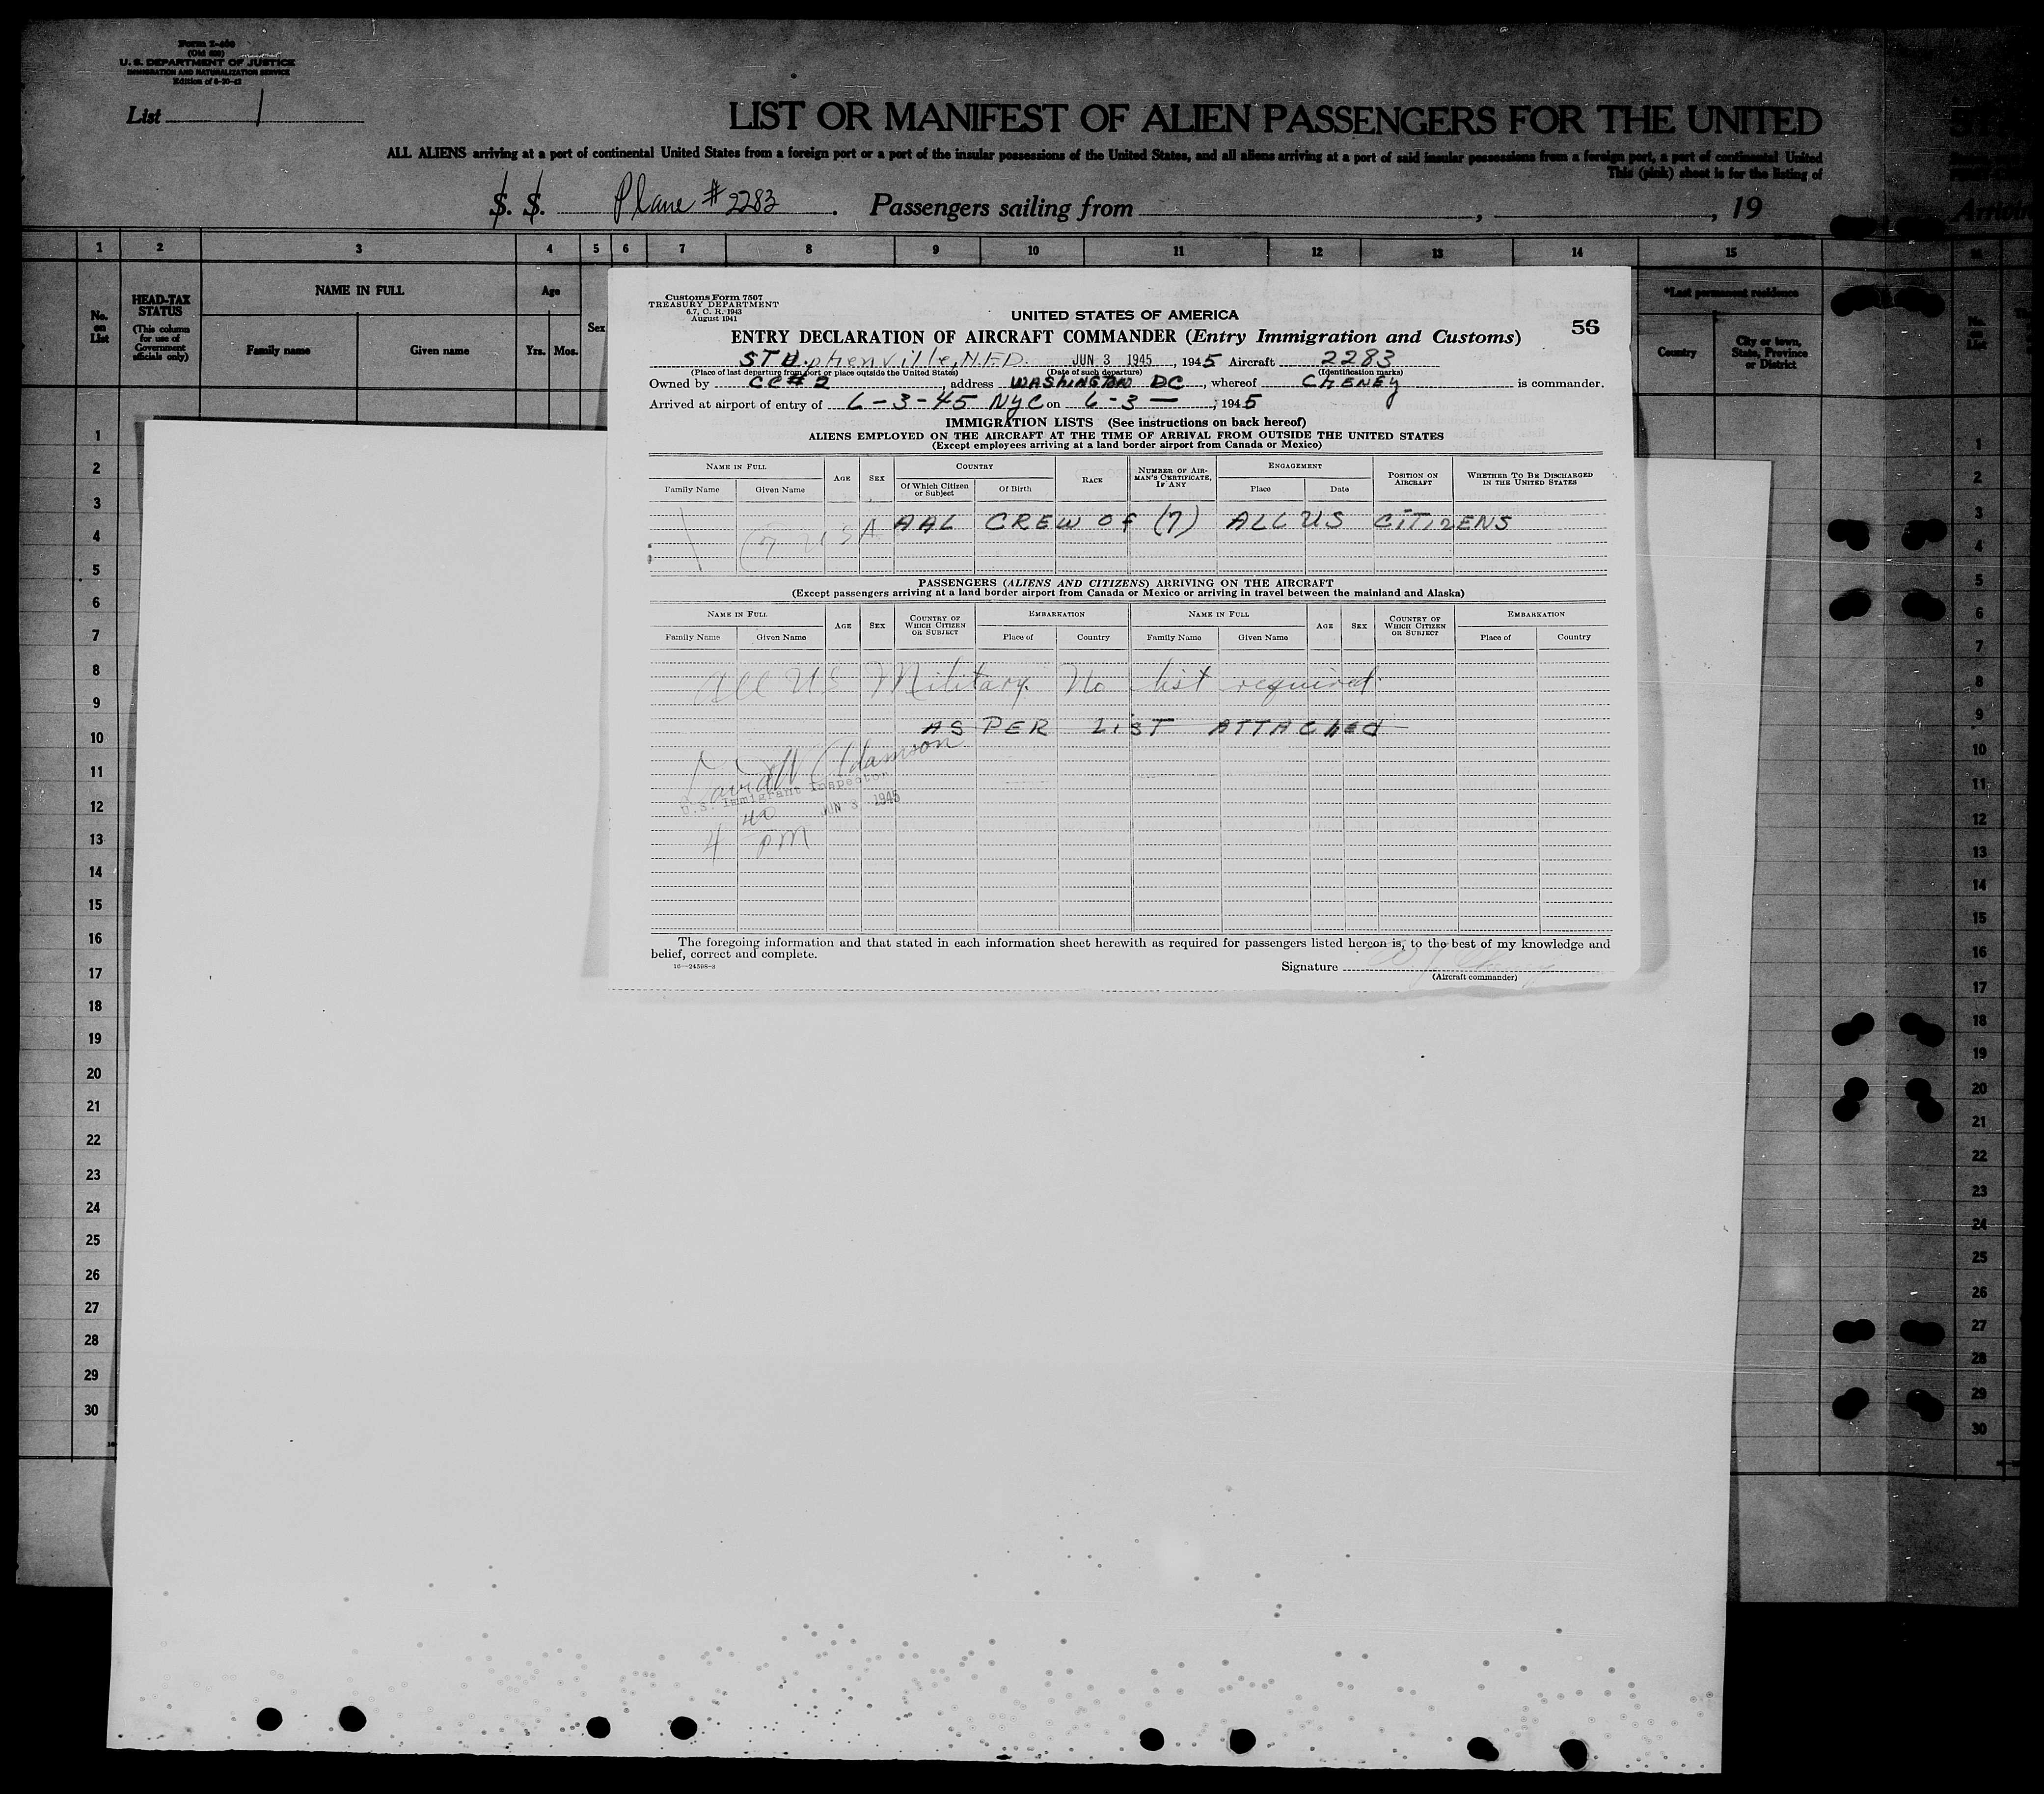 Form I-466
(Old 500)
U. S. DEPARTMENT OF JUSTICE
IMMIGRATION AND NATURALIZATION SERVICE
List 1
LIST OR MANIFEST OF ALIEN PASSENGERS FOR THE UNITED
ALL ALIENS arriving at a port of continental United States from a foreign port or a port of the insular possessions of the United States, and all aliens arriving at a port of said insular possessions from a foreign port, a port of continental United
This (pink) sheet is for the listing of
S. S. Plane # 2283. Passengers sailing from , , 19
1 2 3 4 5 6 7 8 9 10 11 12 13 14 15
No. on List
HEAD-TAX STATUS
(This column for use of Government officials only)
NAME IN FULL
Family name Given name
Age
Yrs. Mos.
Sex
*Last permanent residence
Country City or town, State, Province or District
Customs Form 7507
TREASURY DEPARTMENT
6.7, C. R. 1943
August 1941
UNITED STATES OF AMERICA
56
ENTRY DECLARATION OF AIRCRAFT COMMANDER (Entry Immigration and Customs)
STEphenville, NFD. JUN 3 1945, 1945 Aircraft 2283
(Place of last departure from port or place outside the United States) (Date of such departure) (Identification marks)
Owned by CC# 2, address WASHINGTON DC, whereof CHENEY is commander.
Arrived at airport of entry of 6-3-45 NYC on 6-3-, 1945
IMMIGRATION LISTS (See instructions on back hereof)
ALIENS EMPLOYED ON THE AIRCRAFT AT THE TIME OF ARRIVAL FROM OUTSIDE THE UNITED STATES
(Except employees arriving at a land border airport from Canada or Mexico)
NAME IN FULL AGE SEX COUNTRY RACE NUMBER OF AIRMAN'S CERTIFICATE, IF ANY ENGAGEMENT POSITION ON AIRCRAFT WHETHER TO BE DISCHARGED IN THE UNITED STATES
Family Name Given Name Of Which Citizen or Subject Of Birth Place Date
(7 USA AAL CREW OF (7) ALL US CITIZENS
PASSENGERS (ALIENS AND CITIZENS) ARRIVING ON THE AIRCRAFT
(Except passengers arriving at a land border airport from Canada or Mexico or arriving in travel between the mainland and Alaska)
NAME IN FULL AGE SEX COUNTRY OF WHICH CITIZEN OR SUBJECT EMBARKATION NAME IN FULL AGE SEX COUNTRY OF WHICH CITIZEN OR SUBJECT EMBARKATION
Family Name Given Name Place of Country Family Name Given Name Place of Country
All US Military. No list required.
AS PER LIST ATTACHED
David Adamson
U.S. Immigrant Inspector
JUN 3 1945
4 40 pm
The foregoing information and that stated in each information sheet herewith as required for passengers listed hereon is, to the best of my knowledge and
belief, correct and complete.
16—24598-2
Signature
(Aircraft commander)
1
2
3
4
5
6
7
8
9
10
11
12
13
14
15
16
17
18
19
20
21
22
23
24
25
26
27
28
29
30
1
2
3
4
5
6
7
8
9
10
11
12
13
14
15
16
17
18
19
20
21
22
23
24
25
26
27
28
29
30